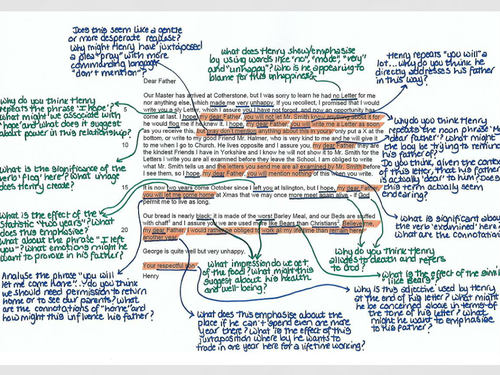 Does this seem like a gentle
or more desperate release?
Why might Henry have juxtaposed
a plea "pray" with more
commanding language
"don't mention"?
What does Henry show/emphasise
by using words like "no", "made", "very"
and "unhappy"? Who is he appearing to
blame for this unhappiness?
Henry repeats "you will" a
lot... why do you think he
directly addresses his father
in this way?
Why do you think Henry
repeats the phrase "I hope"?
What might we associate with
"hope" and does it suggest
about power in this relationship?
What is the significance of the
verb "flog" here? What image
does Henry create?
What is the effect of the
adjective "two years"? What
does this emphasise?
What about the phrase "I left
you"? What emotions might it
want to provoke in his father?
Analyse the phrase "you will
let me come home"... do you think
we should need permission to return
home or to see our parents? What
are the connotations of "home" and
how might this influence his father?
Dear Father
Our Master has arrived at Cotherstone, but I was sorry to learn he had no Letter for me
nor anything else, which made me very unhappy. If you recollect, I promised that I would
write you a sly Letter, which I assure you I have not forgot, and now an opportunity has
come at last. I hope, my dear Father, you will not let Mr. Smith know anything about it for
he would flog me if he knew it. I hope, my dear Father, you will write me a Letter as soon
as you receive this, but pray don't mention anything about this in yours; only put a X at the
bottom, or write to my good Friend Mr. Halmer, who is very kind to me and he will give it
to me when I go to Church. He lives opposite and I assure you, my dear Father, they are
the kindest Friends I have in Yorkshire and I know he will not show it to Mr. Smith for the
Letters I write you are all examined before they leave the School. I am obliged to write
what Mr. Smith tells us and the letters you send me are all examined by Mr. Smith before
I see them, so I hope, my dear Father, you will mention nothing of this when you write.
It is now two years come October since I left you at Islington, but I hope, my dear Father,
you will let me come home at Xmas that we may once more meet again alive - if God
permit me to live as long.
Our bread is nearly black; it is made of the worst Barley Meal, and our Beds are stuffed
with chaff and I assure you we are used more like Bears than Christians. Believe me,
my dear Father, I would rather be obliged to work all my lifetime than remain here
another year.
George is quite well but very unhappy.
Your respectful son
Henry
10
15
20
Why do you think Henry
repeats the noun phrase "My
dear father"? What might
the boy be trying to remind
his father of?
Do you think, given the content
of this letter, that his father
is actually dear to him? Does
this term actually seem
endearing?
What is significant about
the verb 'examined' here?
What are the connotations?
Why do you think Henry
alludes to death and refers
to God?
What is the effect of the simile
"like Bears"?
Why is this adjective used by Henry
at the end of his letter? What might
he be concerned about in terms of
the tone of his letter? What might
he want to emphasise
to his father?
What impression do we get
of the food? What might this
suggest about his health
and well-being?
What does this emphasise about the
place if he can't spend even one more
year there? What is the effect of this
juxtaposition where by he wants to
trade in one year here for a lifetime working?